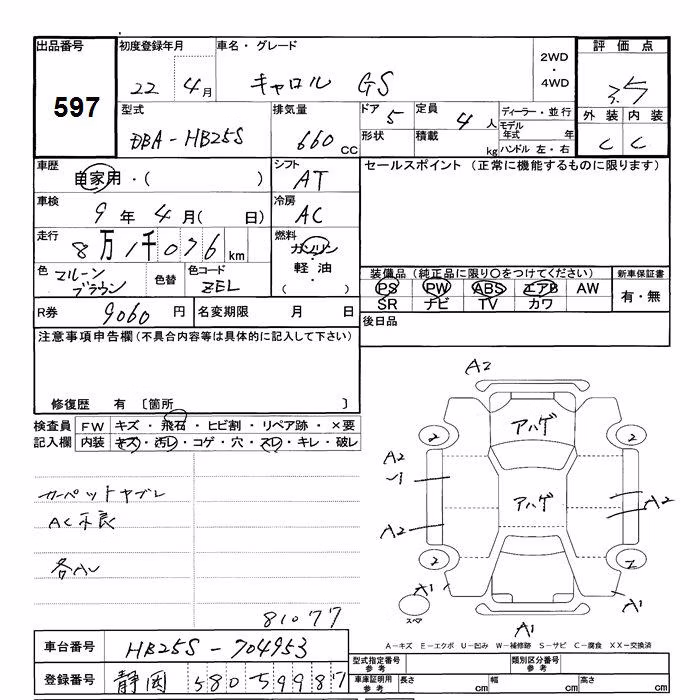 出品番号 597
初度登録年月 22 4月
車名・グレード キャロル GS
2WD ・ 4WD
評価点 3.5
型式 DBA-HB25S
排気量 660 CC
ドア 5
形状
定員 4 人
積載 kg
ディーラー・並行
モデル年式 年
ハンドル 左・右
外装 内装
C C
車歴 自家用・( )
シフト AT
セールスポイント (正常に機能するものに限ります)
車検 9年 4月( 日)
冷房 AC
走行 8万1千076 km
燃料 ガソリン・軽油・( )
色 マルーンブラウン
色替
色コード ZEL
装備品 (純正品に限り○をつけてください)
新車保証書
PS PW ABS エアB AW
SR ナビ TV カワ
有・無
R券 9060 円
名変期限 月 日
後日品
注意事項申告欄 (不具合内容等は具体的に記入して下さい)
修復歴 有 〔箇所 〕
検査員記入欄
FW キズ・飛石・ヒビ割・リペア跡・×要
内装 キズ・汚レ・コゲ・穴・スレ・キレ・破レ
カーペットヤブレ
AC不良
各AU
81077
A2
アハゲ
2 2
A2
アハゲ
A2
A2
2 2
A1 A1
スペア
A1
A-キズ E-エクボ U-凹み W-補修跡 S-サビ C-腐食 XX-交換済
車台番号 HB25S-704953
型式指定番号 参考
類別区分番号 参考
登録番号 静岡 580 59987
車庫証明用 参考
長さ cm
幅 cm
高さ cm